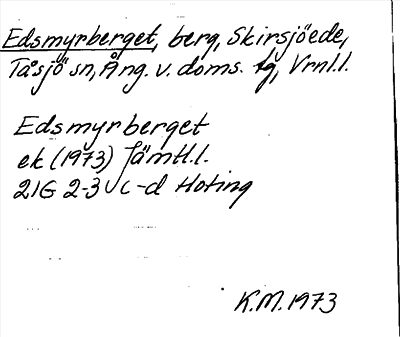 Edsmyrberget, berg, Skirsjöede,
Tåsjö sn, Ång. v. doms. tg, Vrnl.l.
Edsmyrberget
ek (1973) Jämtl.l.
21G 2-3 c-d Hoting
K.M. 1973